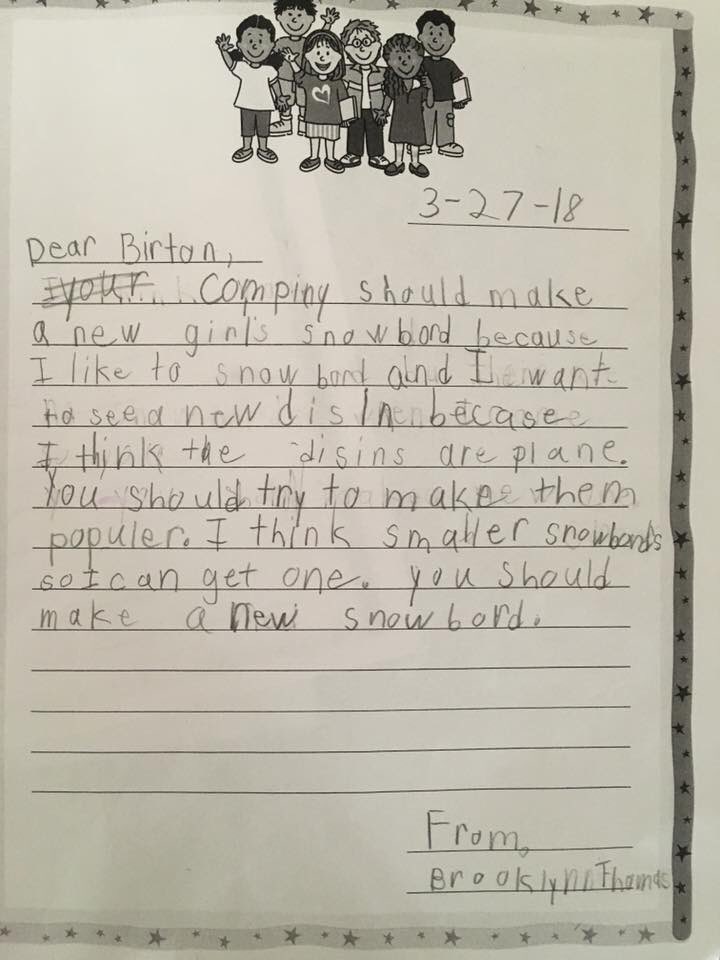 3-27-18
Dear Birton,
your Compiny should make
a new girl's snowbord because
I like to snowbord and I want
to see a new disin becase
I think the disins are plane.
You should try to make them
populer. I think smaller snowbords
so I can get one. you should
make a new snowbord.
From,
Brooklynn Thomas